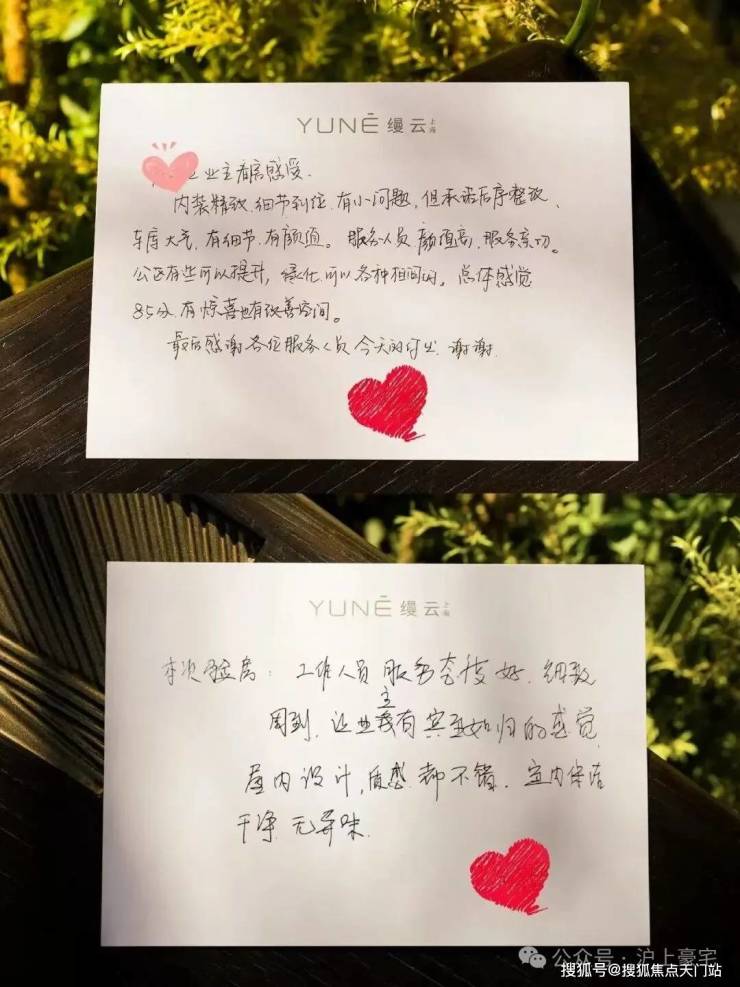 YUNĒ 缦云 上海
业主看房感受.
内装精致.细节到位.有小问题,但承诺后序整改、
车库大气,有细节.有颜值。服务人员颜值高.服务亲切。
公区有些可以提升,绿化可以各种相间的。总体感觉
85分.有惊喜也有改善空间。
最后感谢各位服务人员今天的付出.谢谢.
YUNĒ 缦云 上海
本次验房:工作人员服务态度好.细致
周到.让业主有宾至如归的感觉
屋内设计,质感都不错.室内保洁
干净.无异味.
公众号·沪上豪宅
搜狐号@搜狐焦点天门站